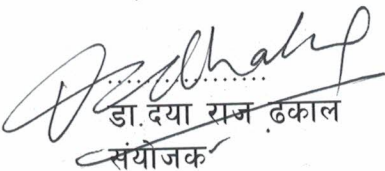 ..................
डा.दया राज ढकाल
संयोजक